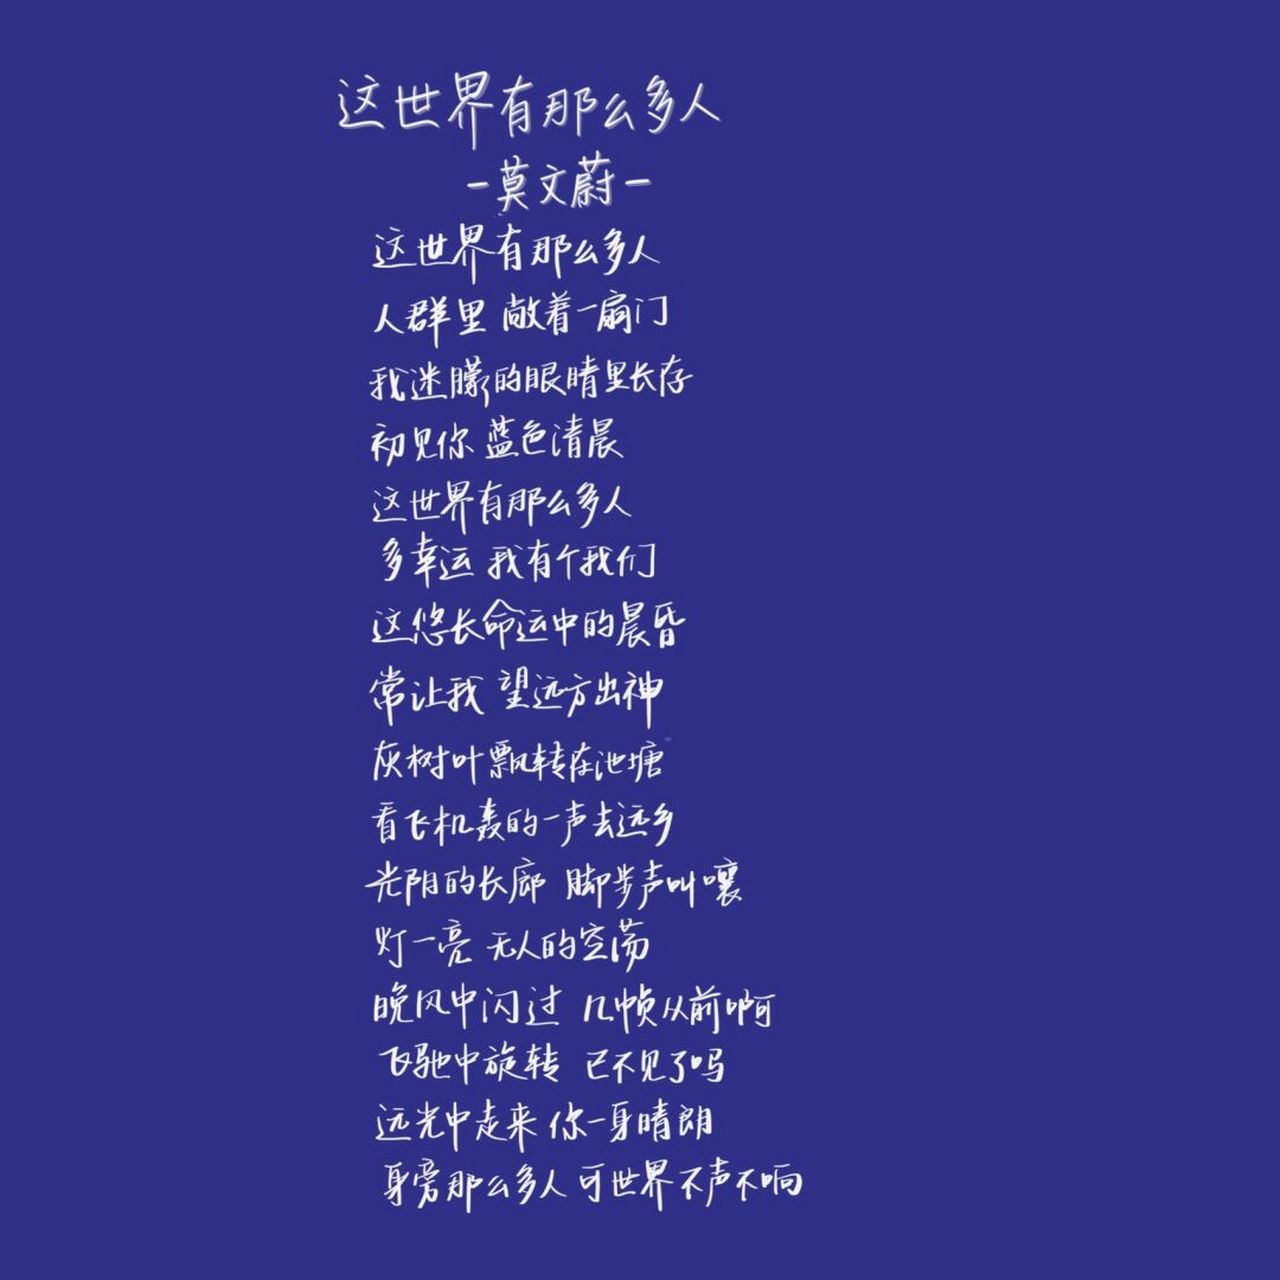 这世界有那么多人
-莫文蔚-
这世界有那么多人
人群里 敞着一扇门
我迷朦的眼睛里长存
初见你 蓝色清晨
这世界有那么多人
多幸运 我有个我们
这悠长命运中的晨昏
常让我 望远方出神
灰树叶飘转在池塘
看飞机轰的一声去远乡
光阴的长廊 脚步声叫嚷
灯一亮 无人的空荡
晚风中闪过 几帧从前啊
飞驰中旋转 已不见了吗
远光中走来 你一身晴朗
身旁那么多人 可世界不声不响